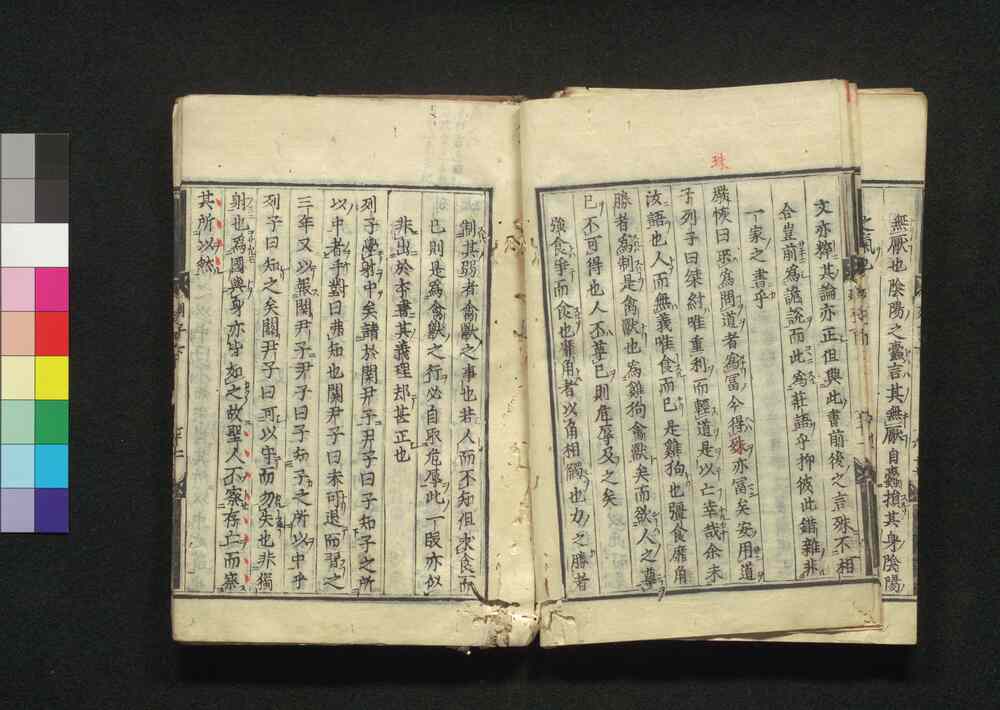 無厭也陰陽之蠧言其無厭自蠧損其身陰陽
珠
文亦粹其論亦正但與此書前後之言殊不相
合豈前為詭說而此為莊語乎抑彼此錯雜非
一家之書乎
嚴恢曰所為問道者為冨今得珠亦冨矣安用道
子列子曰桀紂唯重利而輕道是以亡幸哉余未
汝語也人而無義唯食而已是雞狗也彊食靡角
勝者為制是禽獸也為雞狗禽獸矣而欲人之尊
已不可得也人不尊已則危辱及之矣
強食爭而食也靡角者以角相觸也力之勝者
制其弱者禽獸之事也若人而不知但求食而
已則是為禽獸之行必自取危辱此一段亦似
非出於本書其義理却甚正也
列子學射中矣請於関尹子尹子曰子知子之所
以中者乎對曰弗知也関尹子曰未可退而習之
三年又以報関尹子尹子曰子知子之所以中乎
列子曰知之矣関尹子曰可以守而勿失也非獨
射也為國與身亦皆如之故聖人不察存亡而察
其所以然